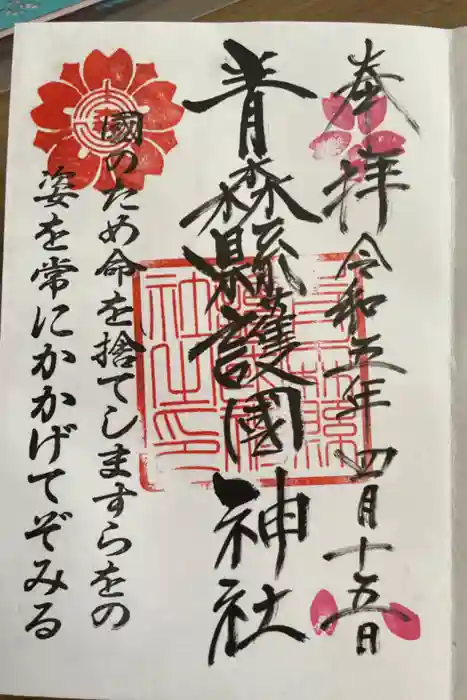 奉拝 令和五年 四月十五日
青森縣護國神社
國のため命を捨てしますらをの
姿を常にかかげてぞみる